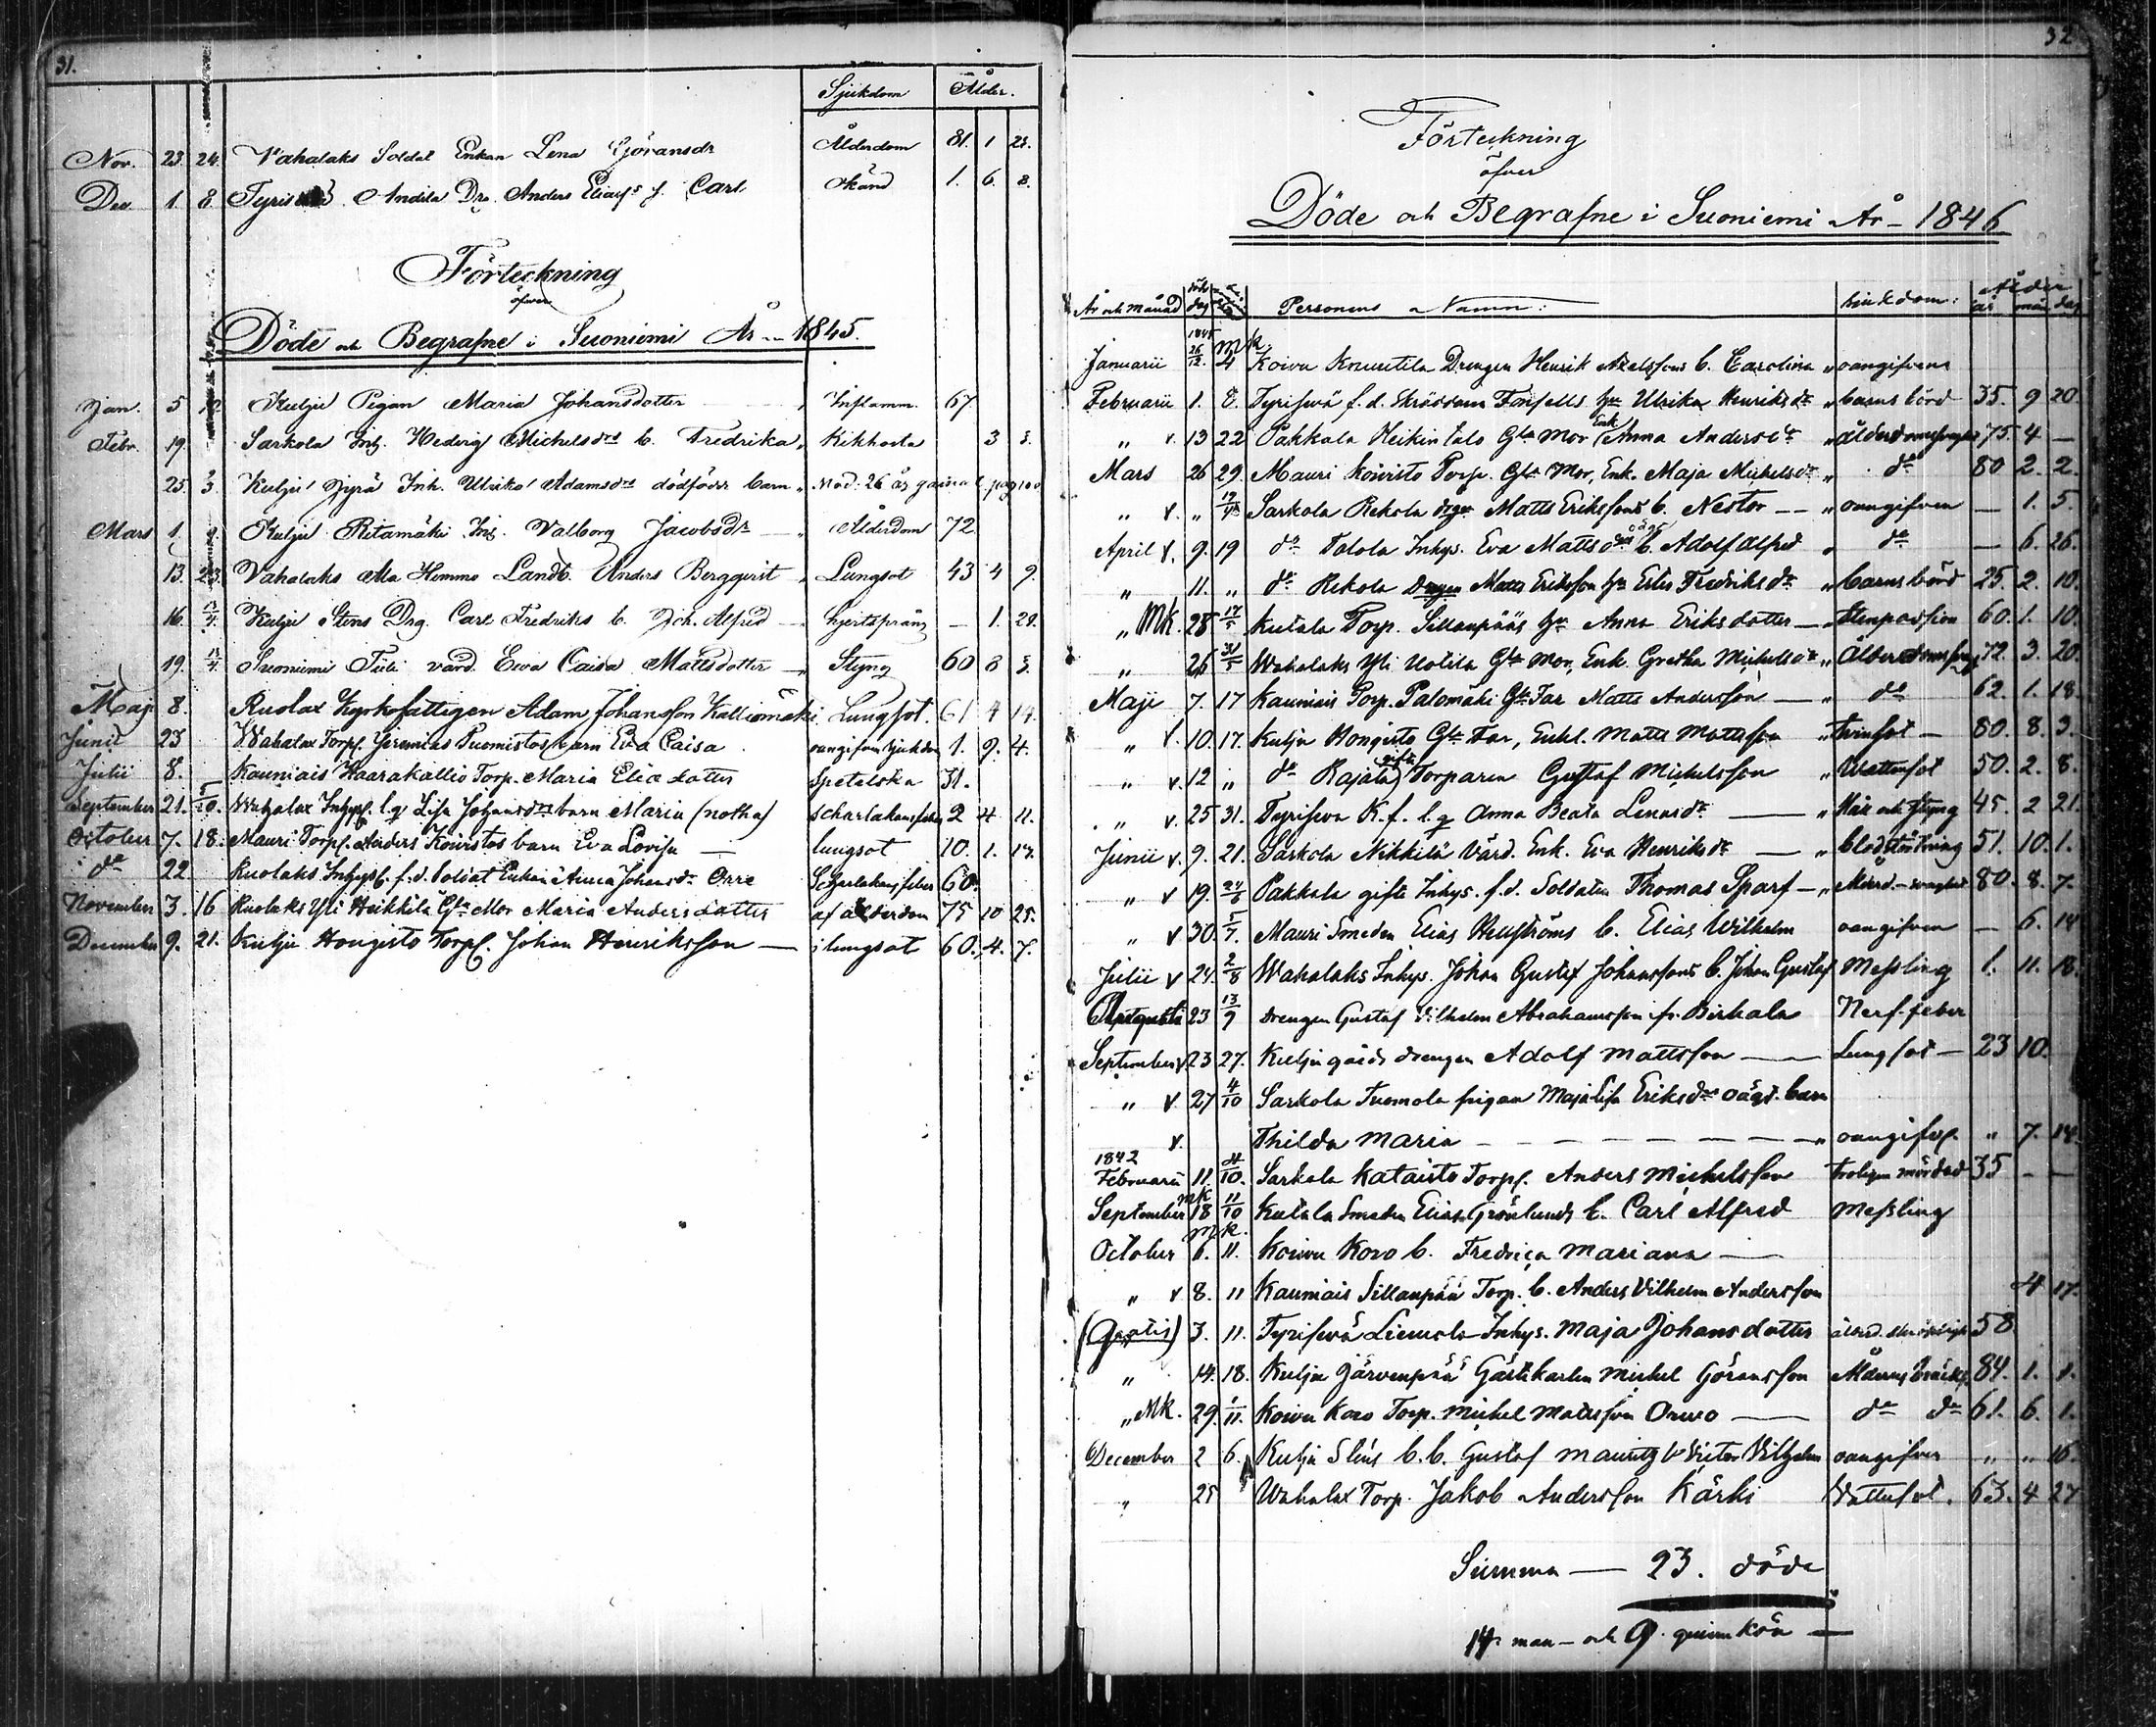 31.
Sjukdom Ålder.
Nov. 23. 24. Vahalaks Soldat Enkan Lena Göransdr Ålderdom 81. 1 23.
Dec. 1. 8. Anders Carl okänd 1. 6. 8.
Förteckning
öfver
Döde och Begrafne i Suoniemi År 1845.
Jan. 5 Kulju Pigan Maria Johansdotter Inflamm. 67
Febr. 19. Sarkola Inh. Hedvig Michelsdrs b. Fredrika Kikhosta 3
25. 3. Kulju Jyrä Inh. Ulrika Adamsdrs dödfödt barn Mod. 26 år
Mars 1. Kulju Inh. Valborg Jacobsdr Ålderdom 72
13. 23. Vahalaks Ala Hemmo Landb. Anders Bergqvist Lungsot 43 4 9.
16. 13/4. Kulju Stens Drg. Carl Fredriks b. Joh. Alfred hjertsprång — 1. 28.
19. 13/4. Suoniemi värd. Ewa Caisa Mattsdotter Styng 60 8
Maji 8. Ruolax Kyrkofattigen Adam Johansson Kalliomäki Lungsot. 61 4 14.
Junii 23 Wahalax Torp. Jeremias Puomistos barn Eva Caisa oangifven sjukdom 1. 9. 4.
Julii 8. Kauniais Haarakallio Torp. Maria Eliæ dotter Spetelska 31.
September 21. 5/10. Wahalax Inhys. l.q. Lisa Johansdrs barn Maria (notha) Scharlakansfeber 2 4 11.
October 7. 18. Mauri Torp. Anders Koivistos barn Eva Lovisa — lungsot 10. 1. 17.
do 22 Ruolaks Inhys. f.d. Soldat Enkan Anna Johansdr Orre Scharlakansfeber 60.
November 3. 16 Ruolaks Yli Heikkilä Gla Mor Maria Andersdotter af ålderdom 75 10 25.
December 9. 21. Kulju Hongisto Torp. Johan Henriksson — i lungsot 60. 4. 7.
32
Förteckning
öfver
Döde och Begrafne i Suoniemi År – 1846
År och månad döds dag Personens Namn: Sjukdom: Ålder år mån. dag
Januarii 1845 26/12. 4 mk. Koivu Knuutila Drengen Henrik Axelssons b. Carolina " oangifven
Februarii 1. 8. Tyrisevä f.d. Skräddaren hu Ulrika Henriksdr " barnsbörd 35. 9 20.
" v. 13 22 Pakkala Heikin talo Gla Mor Enk Anna Andersdr " 75. 4 —
Mars 26 29 Mauri Koivisto Torp. Gla Mor, Enk. Maja Michelsdr " do 80 2. 2.
" v. " Sarkola Rekola drgn Matts Erikssons b. Nestor — " oangifven — 1. 5.
April v. 9. 19 do Talola Inhys. Eva Mattsdrs b. Adolf Alfred " do — 6. 26.
" 11. " do Rekola Drgen Matts Eriksson hu Fredriksdr " barnsbörd 25. 2. 10.
" Mk. 28 17/5 Kutala Torp. Sillanpääs hu Anna Eriksdotter — " Stenpassion 60. 1. 10.
" 26 31/5 Wahalaks Yli Uotila Gla Mor, Enk. Gretha Michelsdr " 72. 3. 20.
Maji 7. 17 Kauniais Torp. Palomäki Gla Far Matts Andersson — " do 62. 1. 18.
" v. 10. 17. Kulju Hongisto Gla Far, Enkl. Matts Mattsson " Tvinsot — 80. 8. 3.
" v. 12 " do Rajala gifte Torparen Gustaf Michelsson " Wattusot 50. 2. 8.
" v. 25 31. Tyrisevä K.f. l.q. Anna Beata Lenasdr — " Håll och styng 45. 2 21.
Junii v. 9. 21. Sarkola Nikkilä Värd. Enk. Eva Henriksdr — " blodstörtning 51. 10. 1.
" v 19. Pakkala gifte Inhys. f.d. Soldaten Thomas Sparf — " 80. 8. 7.
" v 30. 5/7. Mauri Smeden Elias Hellströms b. Elias Wilhelm oangifven — 6. 14
Julii v 24. 2/8 Wahalaks Inhys. Johan Gustaf Johanssons b. Johan Gustaf Messling 1. 11. 18.
Augusti 23 13/9 Drengen Gustaf Vilhelm Abrahamsson fr. Birkala Nerf-feber
September v. 23 27. Kulju gårds drengen Adolf Mattsson — Lungsot — 23 10.
" v 27 4/10 Sarkola Tuomola pigan Maja Lisa Eriksdrs oägt. barn
v. Thilda Maria — oangifvf. " 7. 14.
1842
Februarii 11. 4/10. Sarkola Kataisto Torp. Anders Michelsson troligen mördad 35 — —
September mk 18 11/10 Kutala Smeden Elias Grönlunds b. Carl Alfred Messling
October mk. 6. 11. Koivu Koro b. Fredrica Mariana —
" v 8. 11 Kauniais Sillanpää Torp. b. Anders Vilhelm Andersson 4 17.
(Gratis) 3. 11. Tyrisevä Liemola Inhys. Maja Johansdotter 58
" 14. 18. Kulju Järvenpää Gästkarlen Michel Göransson Ålderns bräckl. 84. 1. 1.
" Mk. 29. 1/11. Koivu Koro Torp. Michel Mattsson — do do 61. 6. 1.
December 2 6. Kulju Stens b.b. Gustaf Mauritz & Victor Vilhelm oangifven " " 16.
" 25 Wahalax Torp. Jakob Andersson Kärki Wattusot. 63. 4 27
Summa — 23. döde
14 man – och 9 quinnkön —